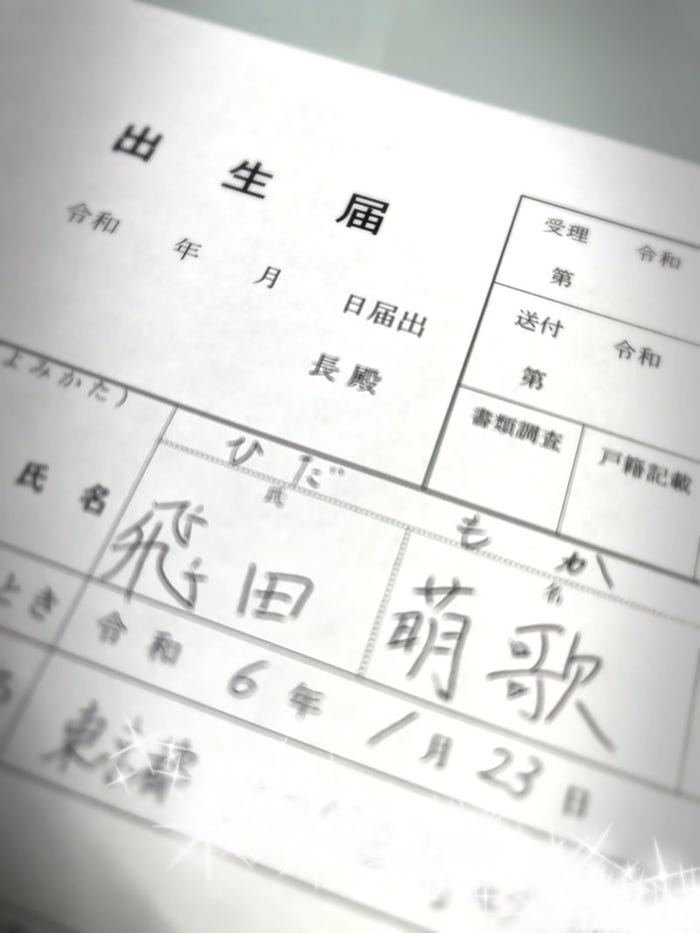 出生届
令和 年 月 日届出
長殿
受理 令和
第
送付 令和
第
書類調査 戸籍記載
よみかた)
ひだ もか
氏 名
氏名
飛田 萌歌
とき 令和 6年 1月 23日
東京都